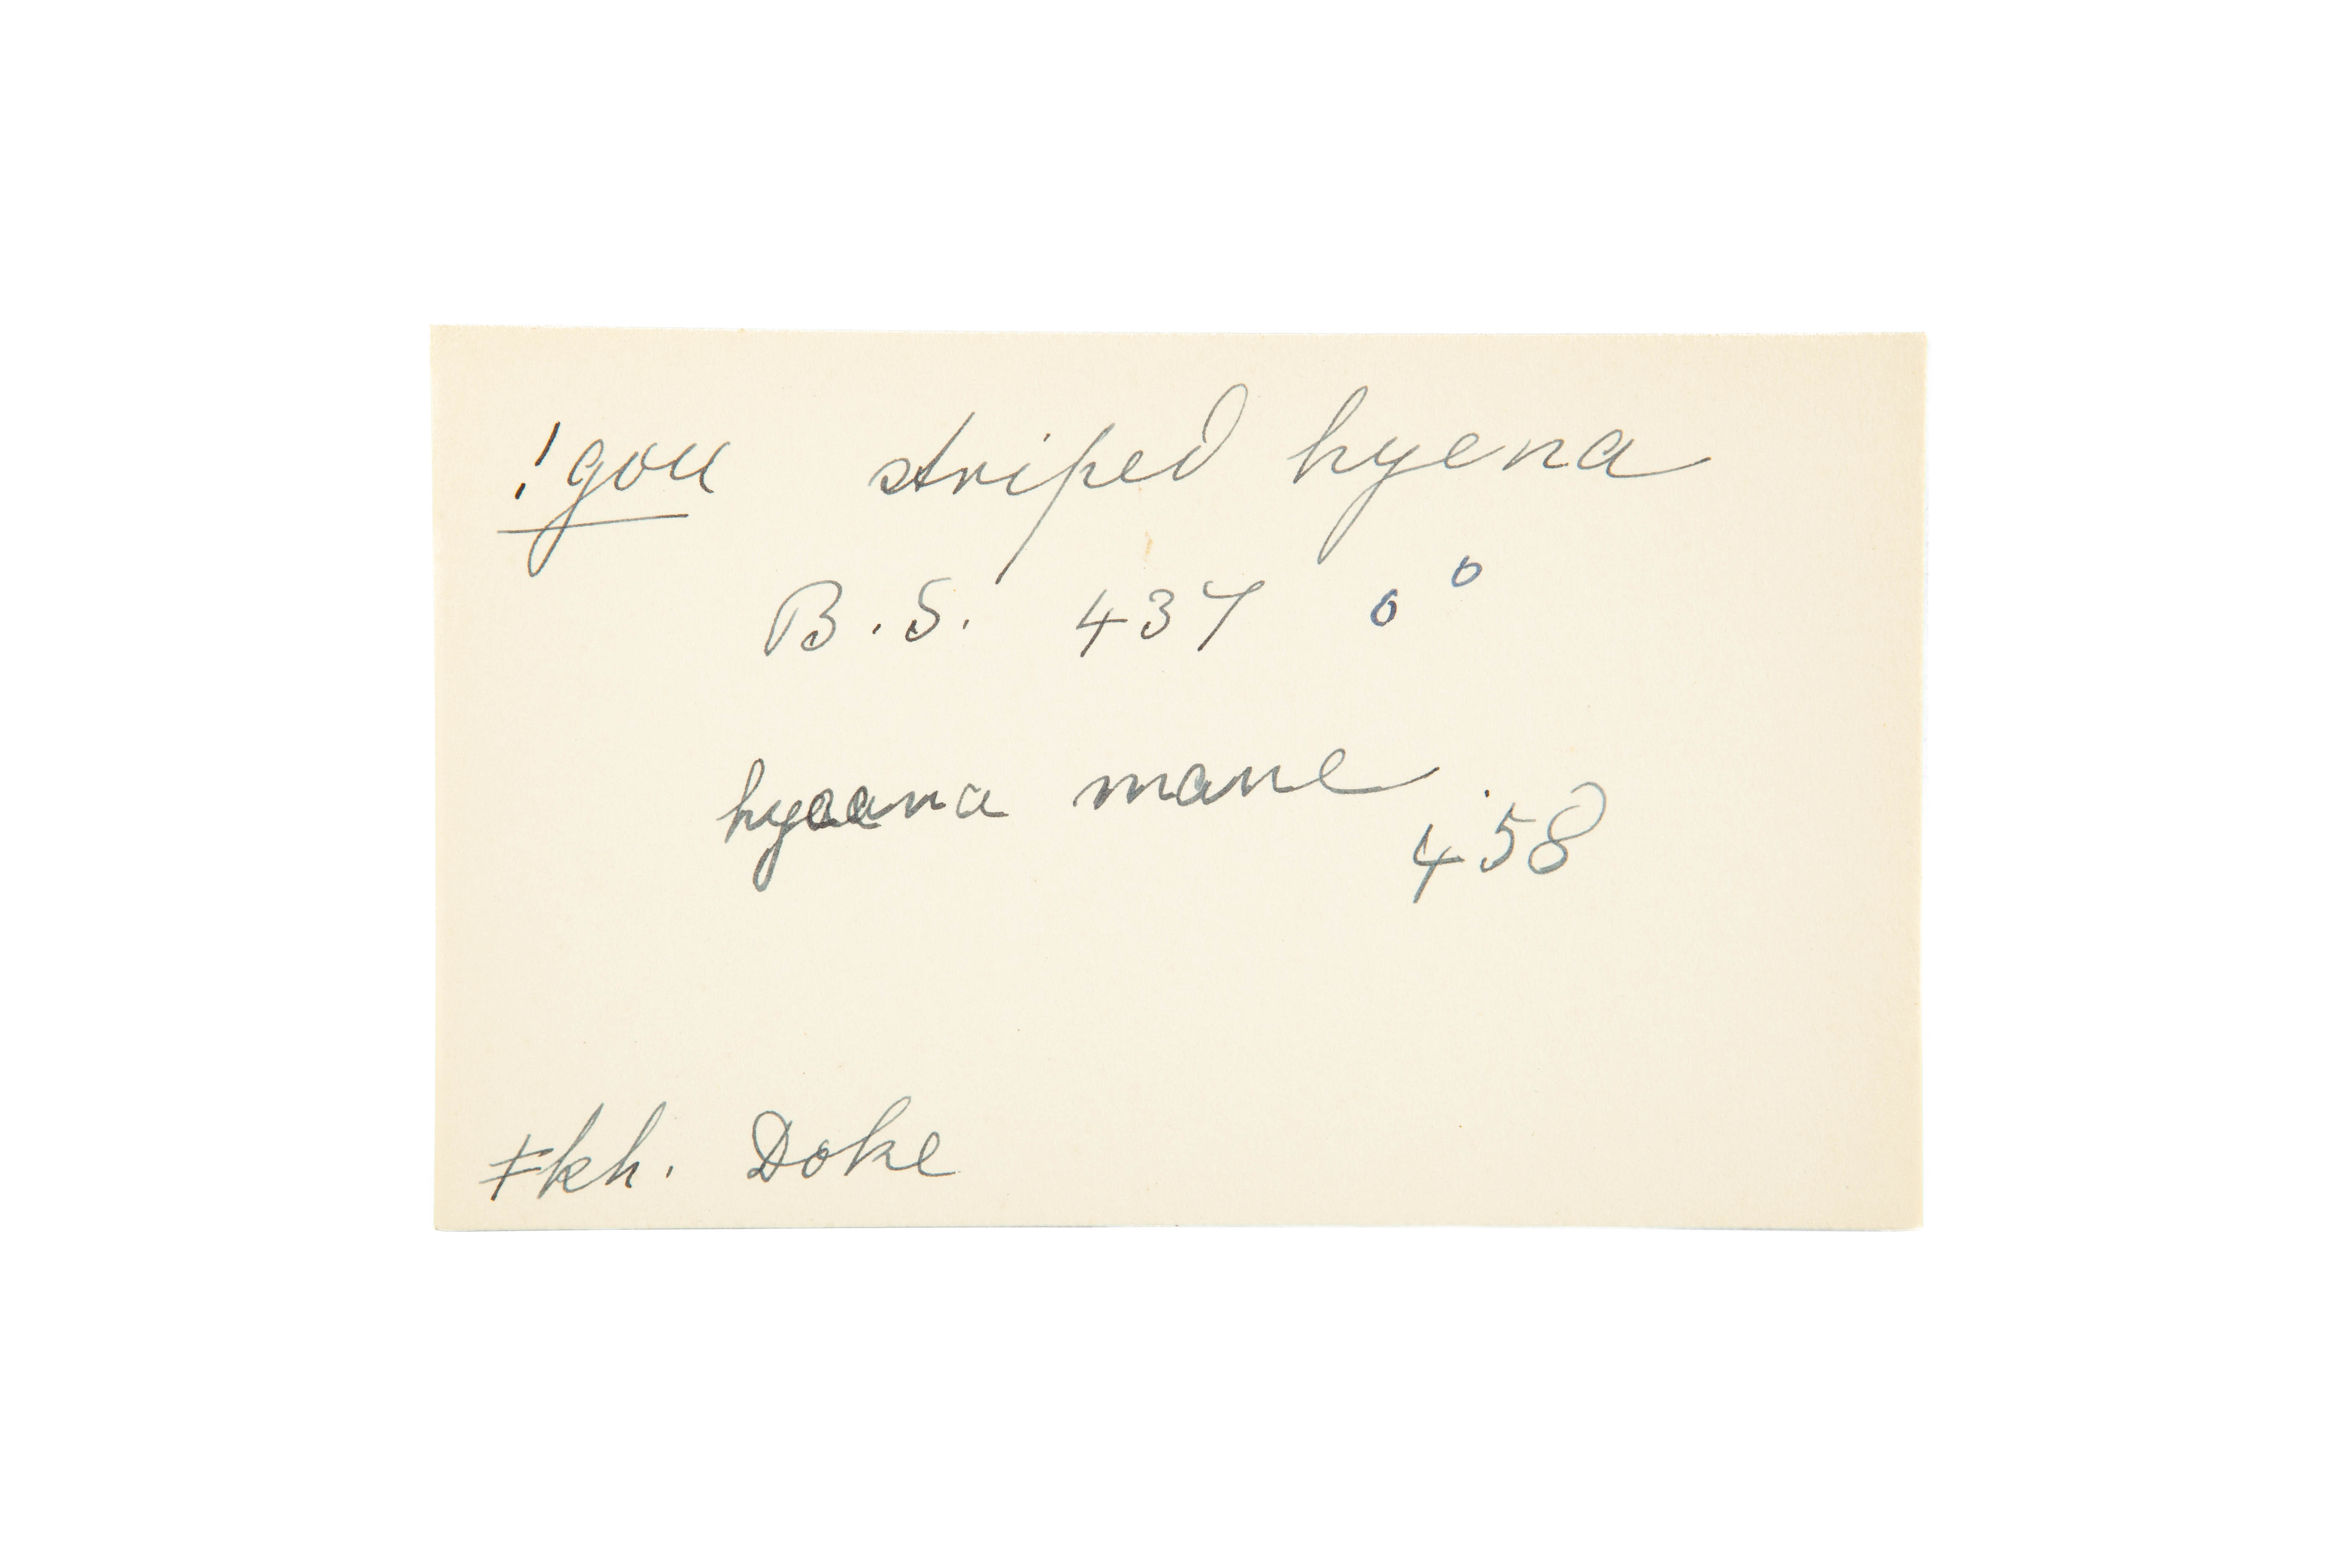 !gou striped hyena
B.S. 437 o o
hyaena mane.
458
ǂkh. Doke